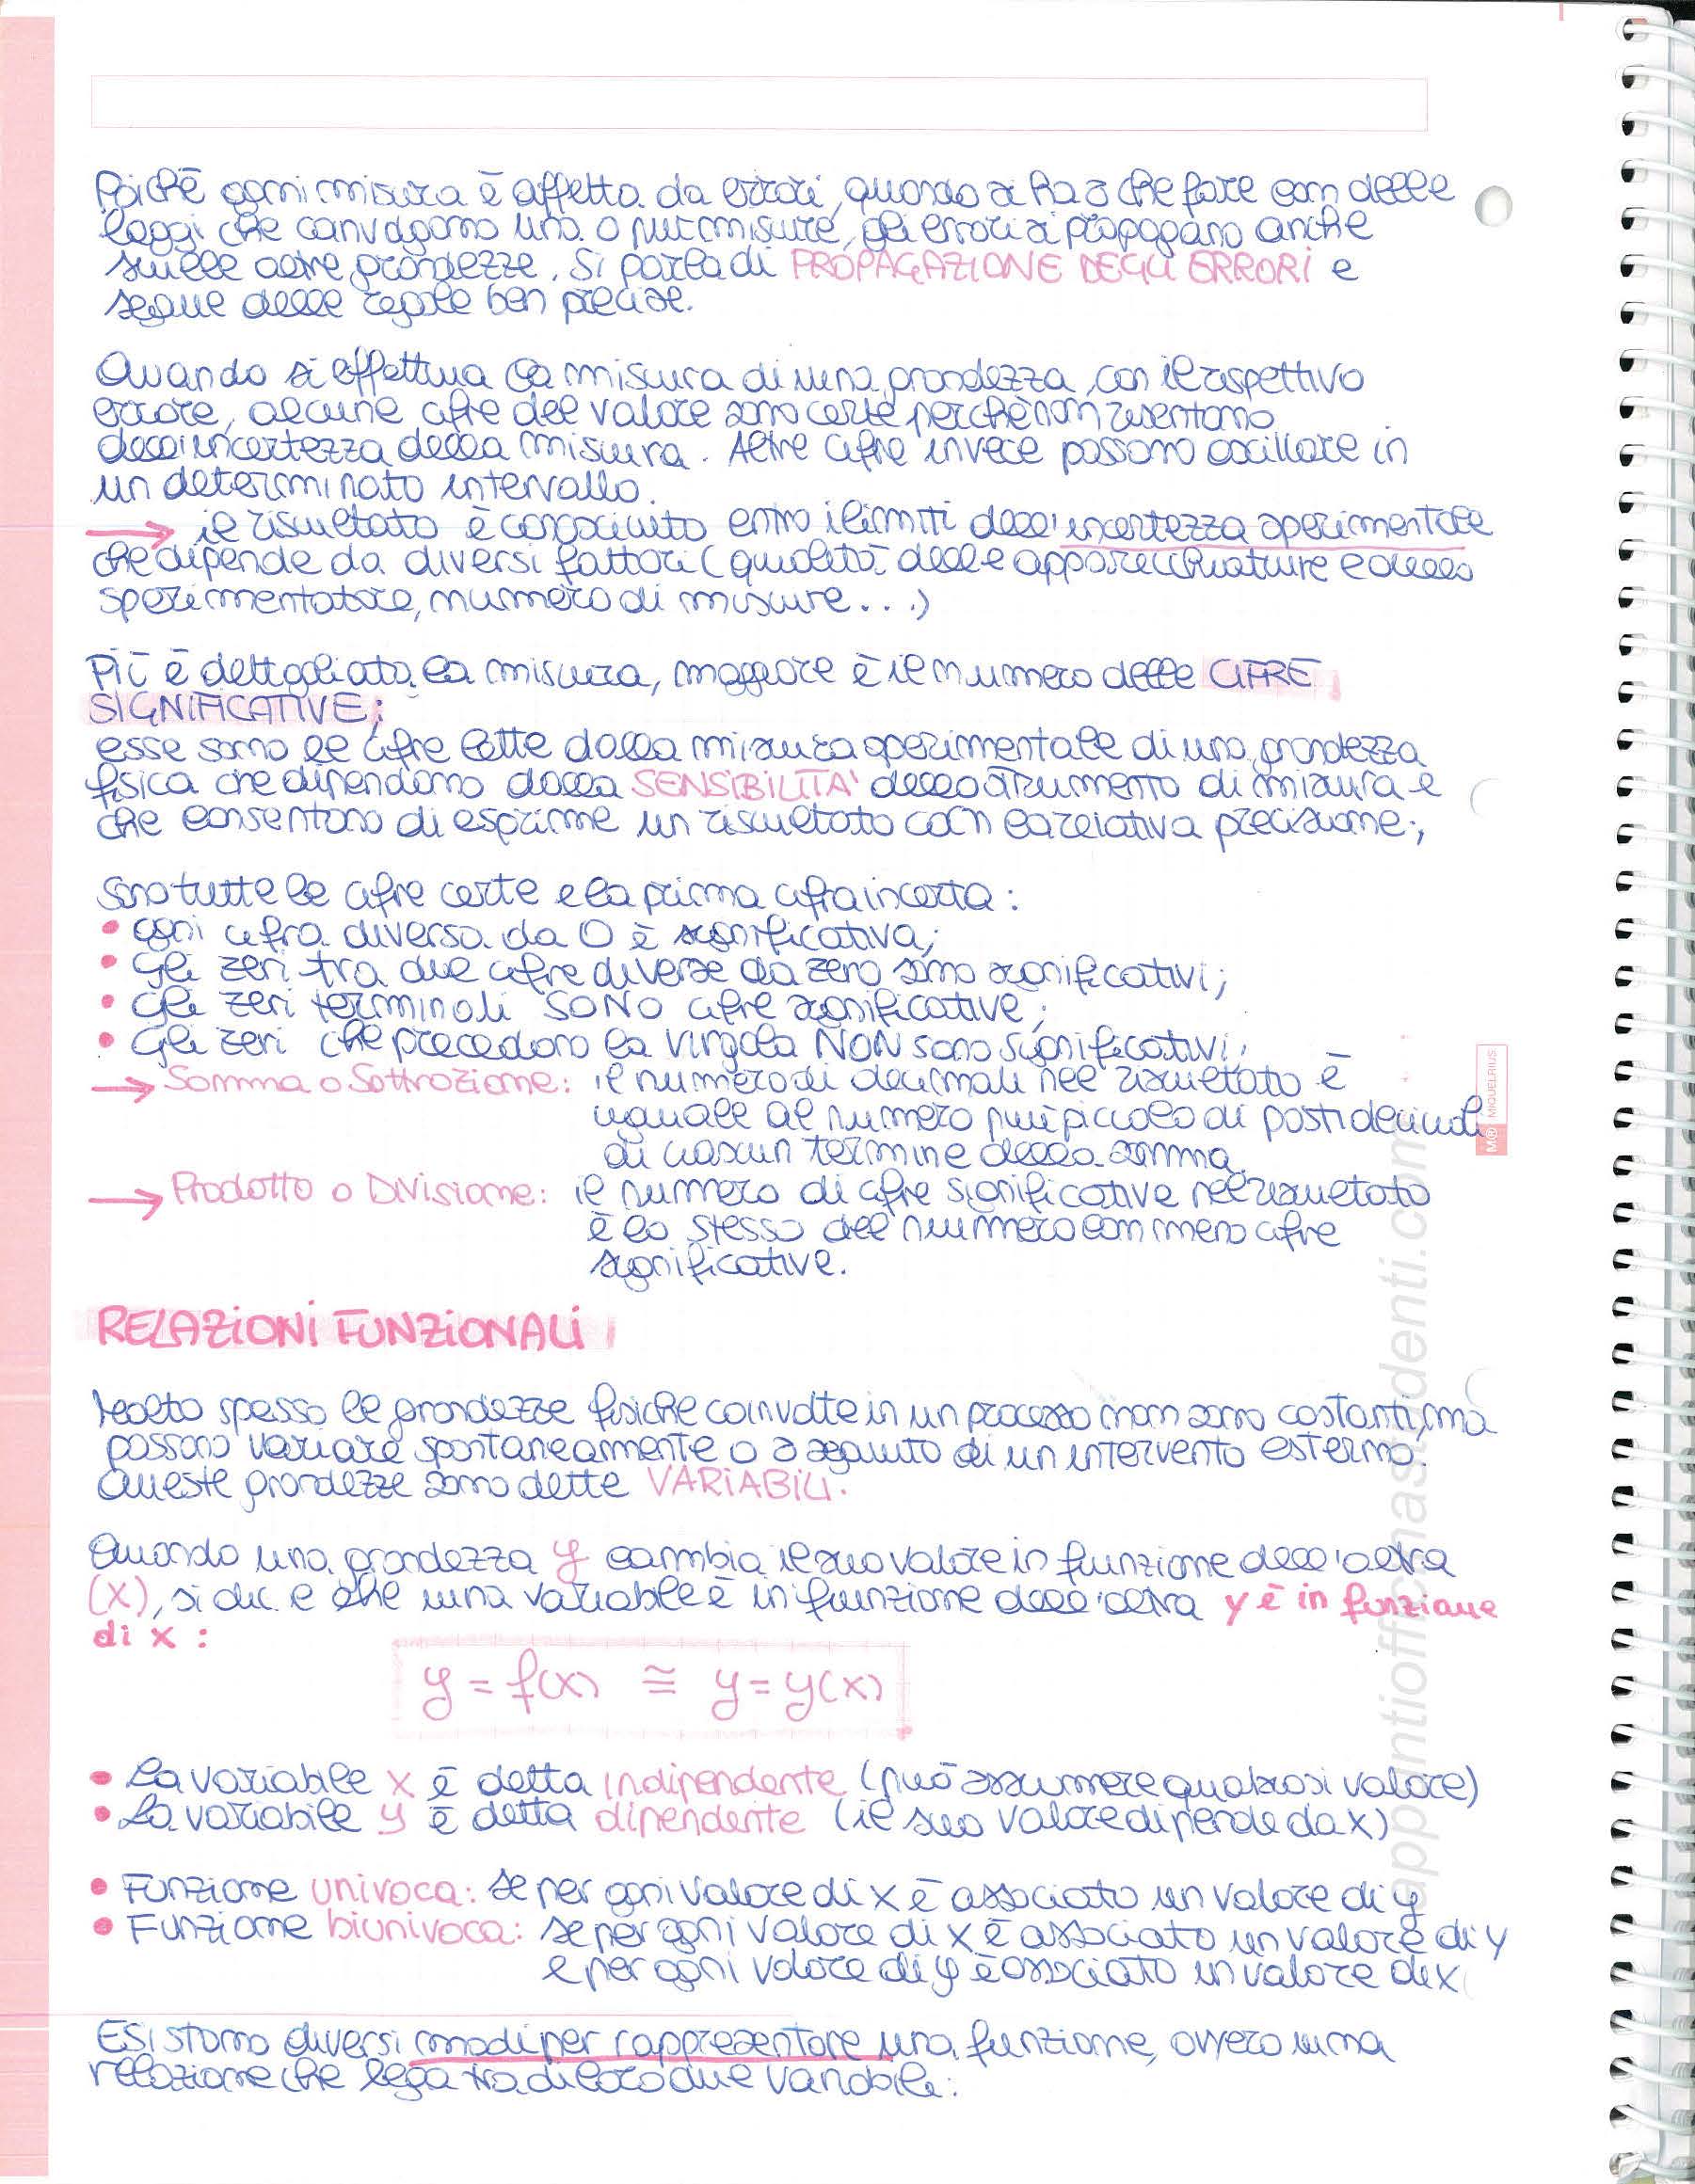 Poiché ogni misura è affetta da errori, quando si ha a che fare con delle
leggi che coinvolgono una o più misure, gli errori si propagano anche
sulle altre grandezze. Si parla di PROPAGAZIONE DEGLI ERRORI e
segue delle regole ben precise.
Quando si effettua la misura di una grandezza, con il rispettivo
errore, alcune cifre del valore sono certe perché non risentono
dell'incertezza della misura. Altre cifre invece possono oscillare in
un determinato intervallo.
→ il risultato è conosciuto entro i limiti dell'incertezza sperimentale
che dipende da diversi fattori (qualità delle apparecchiature e dello
sperimentatore, numero di misure...)
Più è dettagliata la misura, maggiore è il numero delle CIFRE
SIGNIFICATIVE;
esse sono le cifre lette dalla misura sperimentale di una grandezza
fisica che dipendono dalla SENSIBILITA' dello strumento di misura e
che consentono di esprime un risultato con la relativa precisione;
Sono tutte le cifre certe e la prima cifra incerta:
• ogni cifra diversa da 0 è significativa;
• Gli zeri tra due cifre diverse da zero sono significativi;
• Gli zeri terminali SONO cifre significative;
• Gli zeri che precedono la virgola NON sono significativi;
→ Somma o Sottrazione: il numero di decimali nel risultato è
uguale al numero più piccolo di posti decimali
di ciascun termine della somma.
→ Prodotto o Divisione: il numero di cifre significative nel risultato
è lo stesso del numero con meno cifre
significative.
RELAZIONI FUNZIONALI
Molto spesso le grandezze fisiche coinvolte in un processo non sono costanti, ma
possono variare spontaneamente o a seguito di un intervento esterno.
Queste grandezze sono dette VARIABILI.
Quando una grandezza y cambia il suo valore in funzione dell'altra
(x), si dice che una variabile è in funzione dell'altra y è in funzione
di x :
y = f(x) ≅ y = y(x)
• La variabile x è detta indipendente (può assumere qualsiasi valore)
• La variabile y è detta dipendente (il suo valore dipende da x)
• Funzione univoca: se per ogni valore di x è associato un valore di y
• Funzione biunivoca: se per ogni valore di x è associato un valore di y
e per ogni valore di y è associato un valore di x
Esistono diversi modi per rappresentare una funzione, ovvero una
relazione che lega tra di loro due variabili:
M® MIQUELRIUS
appuntiofficinastudenti.com